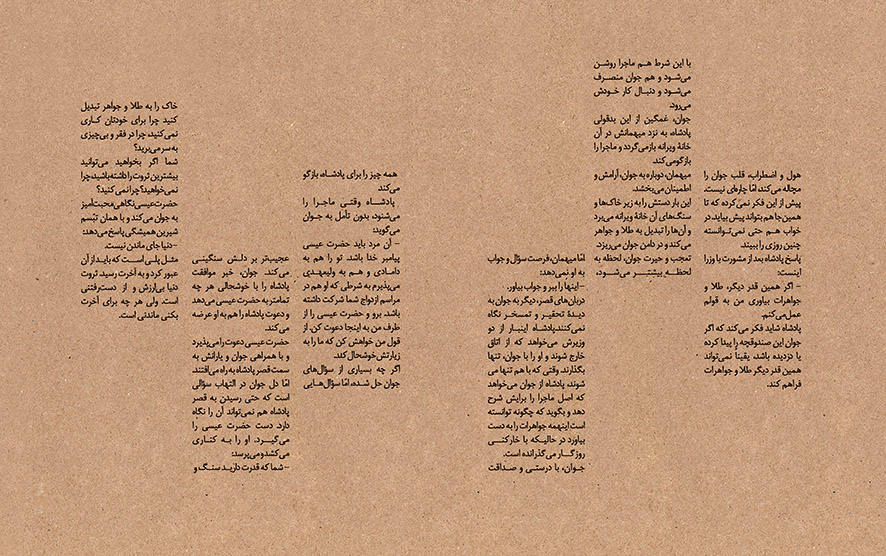 هول و اضطراب، قلب جوان را
مچاله می‌کند، امّا چاره‌ای نیست.
پیش از این فکر نمی‌کرده که تا
همین‌جا هم بتواند پیش بیاید. در
خواب هم حتی نمی‌توانسته
چنین روزی را ببیند.
پاسخ پادشاه بعد از مشورت با وزرا
اینست:
- اگر همین قدر دیگر، طلا و
جواهرات بیاوری من به قولم
عمل می‌کنم.
پادشاه شاید فکر می‌کند که اگر
جوان این صندوقچه را پیدا کرده
یا دزدیده باشد، یقیناً نمی‌تواند
همین قدر دیگر طلا و جواهرات
فراهم کند.
با این شرط هم ماجرا روشن
می‌شود و هم جوان منصرف
می‌شود و دنبال کار خودش
می‌رود.
جوان، غمگین از این بدقولی
پادشاه، به نزد میهمانش در آن
خانهٔ ویرانه بازمی‌گردد و ماجرا را
بازگو می‌کند.
میهمان، دوباره به جوان، آرامش و
اطمینان می‌بخشد.
این بار دستش را به زیر خاک‌ها و
سنگ‌های آن خانهٔ ویرانه می‌برد
و آن‌ها را تبدیل به طلا و جواهر
می‌کند و در دامن جوان می‌ریزد.
تعجب و حیرت جوان، لحظه به
لحظه بیشتر می‌شود،
امّا میهمان، فرصت سؤال و جواب
به او نمی‌دهد:
-اینها را ببر و جواب بیاور.
دربان‌های قصر، دیگر به جوان به
دیدهٔ تحقیر و تمسخر نگاه
نمی‌کنند.پادشاه اینبار از دو
وزیرش می‌خواهد که از اتاق
خارج شوند و او را با جوان، تنها
بگذارند. وقتی که با هم تنها می
شوند، پادشاه از جوان می‌خواهد
که اصل ماجرا را برایش شرح
دهد و بگوید که چگونه توانسته
است اینهمه جواهرات را به دست
بیاورد در حالیکه با خارکنی
روزگار می‌گذرانده است.
جوان، با درستی و صداقت
همه چیز را برای پادشاه، بازگو
می‌کند
پادشاه وقتی ماجرا را
می‌شنود، بدون تأمل به جوان
می‌گوید:
- آن مرد باید حضرت عیسی
پیامبر خدا باشد. تو را هم به
دامادی و هم به ولیعهدی
می‌پذیرم به شرطی که او هم در
مراسم ازدواج شما شرکت داشته
باشد. برو و حضرت عیسی را از
طرف من به اینجا دعوت کن. از
قول من خواهش کن که ما را به
زیارتش خوشحال کند.
اگر چه بسیاری از سؤال‌های
جوان حل شده، امّا سؤال‌هایی
عجیب‌تر بر دلش سنگینی
می‌کند. جوان، خبر موافقت
پادشاه را با خوشحالی هر چه
تمامتر به حضرت عیسی می‌دهد
و دعوت پادشاه را هم به او عرضه
می‌کند.
حضرت عیسی دعوت را می‌پذیرد
و با همراهی جوان و یارانش به
سمت قصر پادشاه به راه می‌افتند.
امّا دل جوان در التهاب سؤالی
است که حتی رسیدن به قصر
پادشاه هم نمی‌تواند آن را نگاه
دارد. دست حضرت عیسی را
می‌گیرد. او را به کناری
می‌کشد و می‌پرسد:
-شما که قدرت دارید سنگ و
خاک را به طلا و جواهر تبدیل
کنید چرا برای خودتان کاری
نمی‌کنید، چرا در فقر و بی‌چیزی
به سر می‌برید؟
شما اگر بخواهید می‌توانید
بیشترین ثروت را داشته باشید، چرا
نمی‌خواهید؟ چرا نمی کنید؟
حضرت عیسی نگاهی محبت‌آمیز
به جوان می‌کند و با همان تبّسم
شیرین همیشگی پاسخ می‌دهد:
-دنیا جای ماندن نیست.
مثل پلی است که باید از آن
عبور کرد و به آخرت رسید. ثروت
دنیا بی‌ارزش و از دست‌رفتنی
است. ولی هر چه برای آخرت
بکنی ماندنی است.